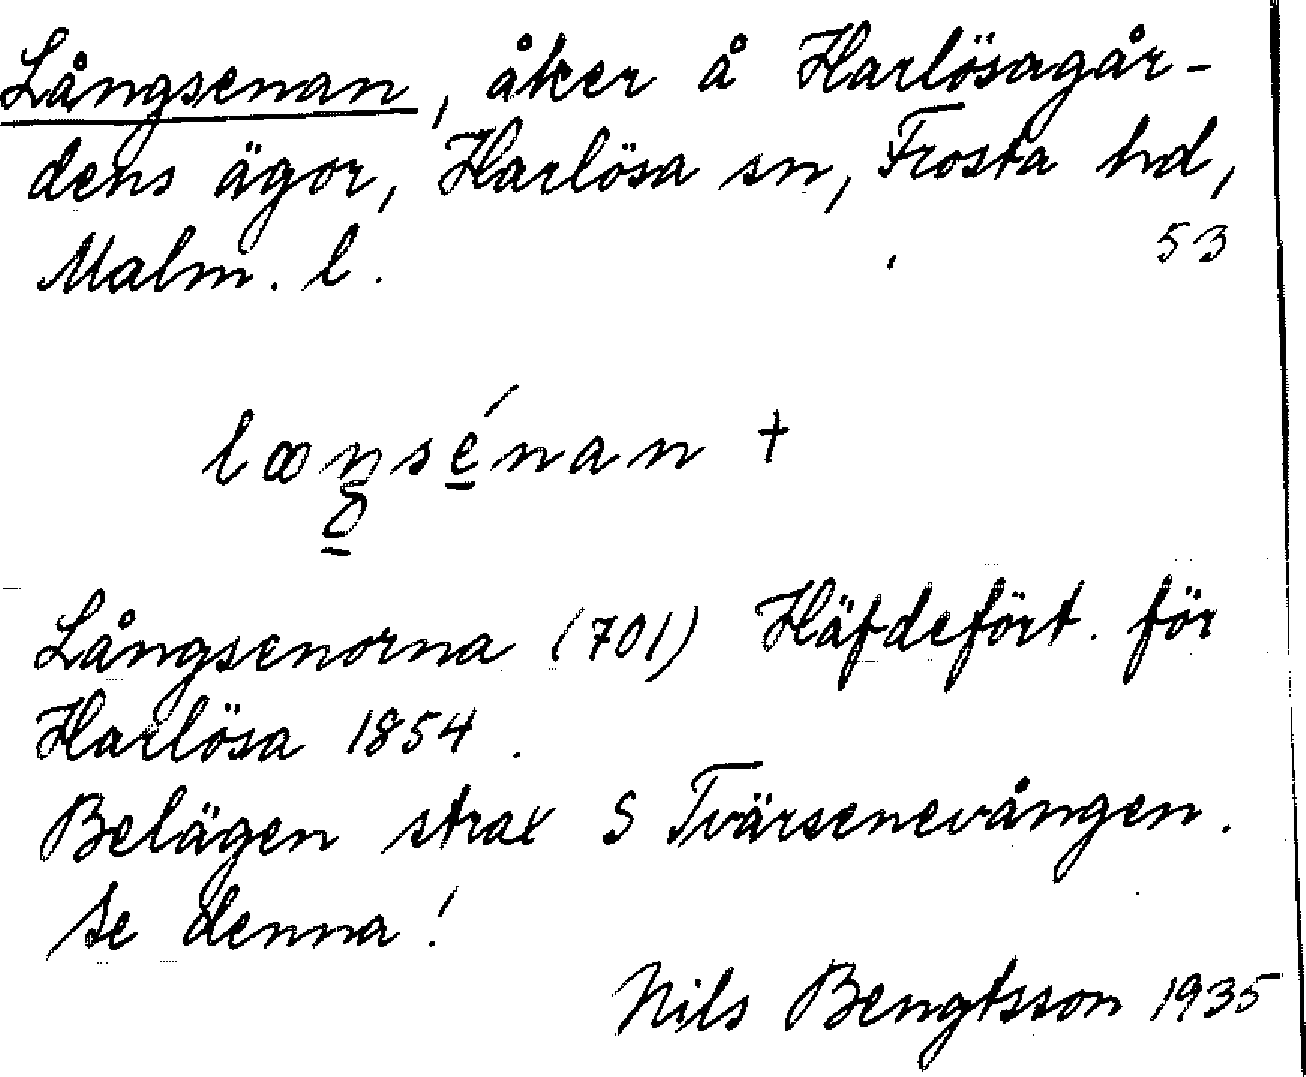 Långsenan, åker å Harlösagår-
dens ägor, Harlösa sn, Frosta hd,
Malm. l. 53
lꝏŋsénan +
Långsenorna (701) Häfdefört. för
Harlösa 1854.
Belägen strax S Tvärsenevången.
Se denna!
Nils Bengtsson 1935